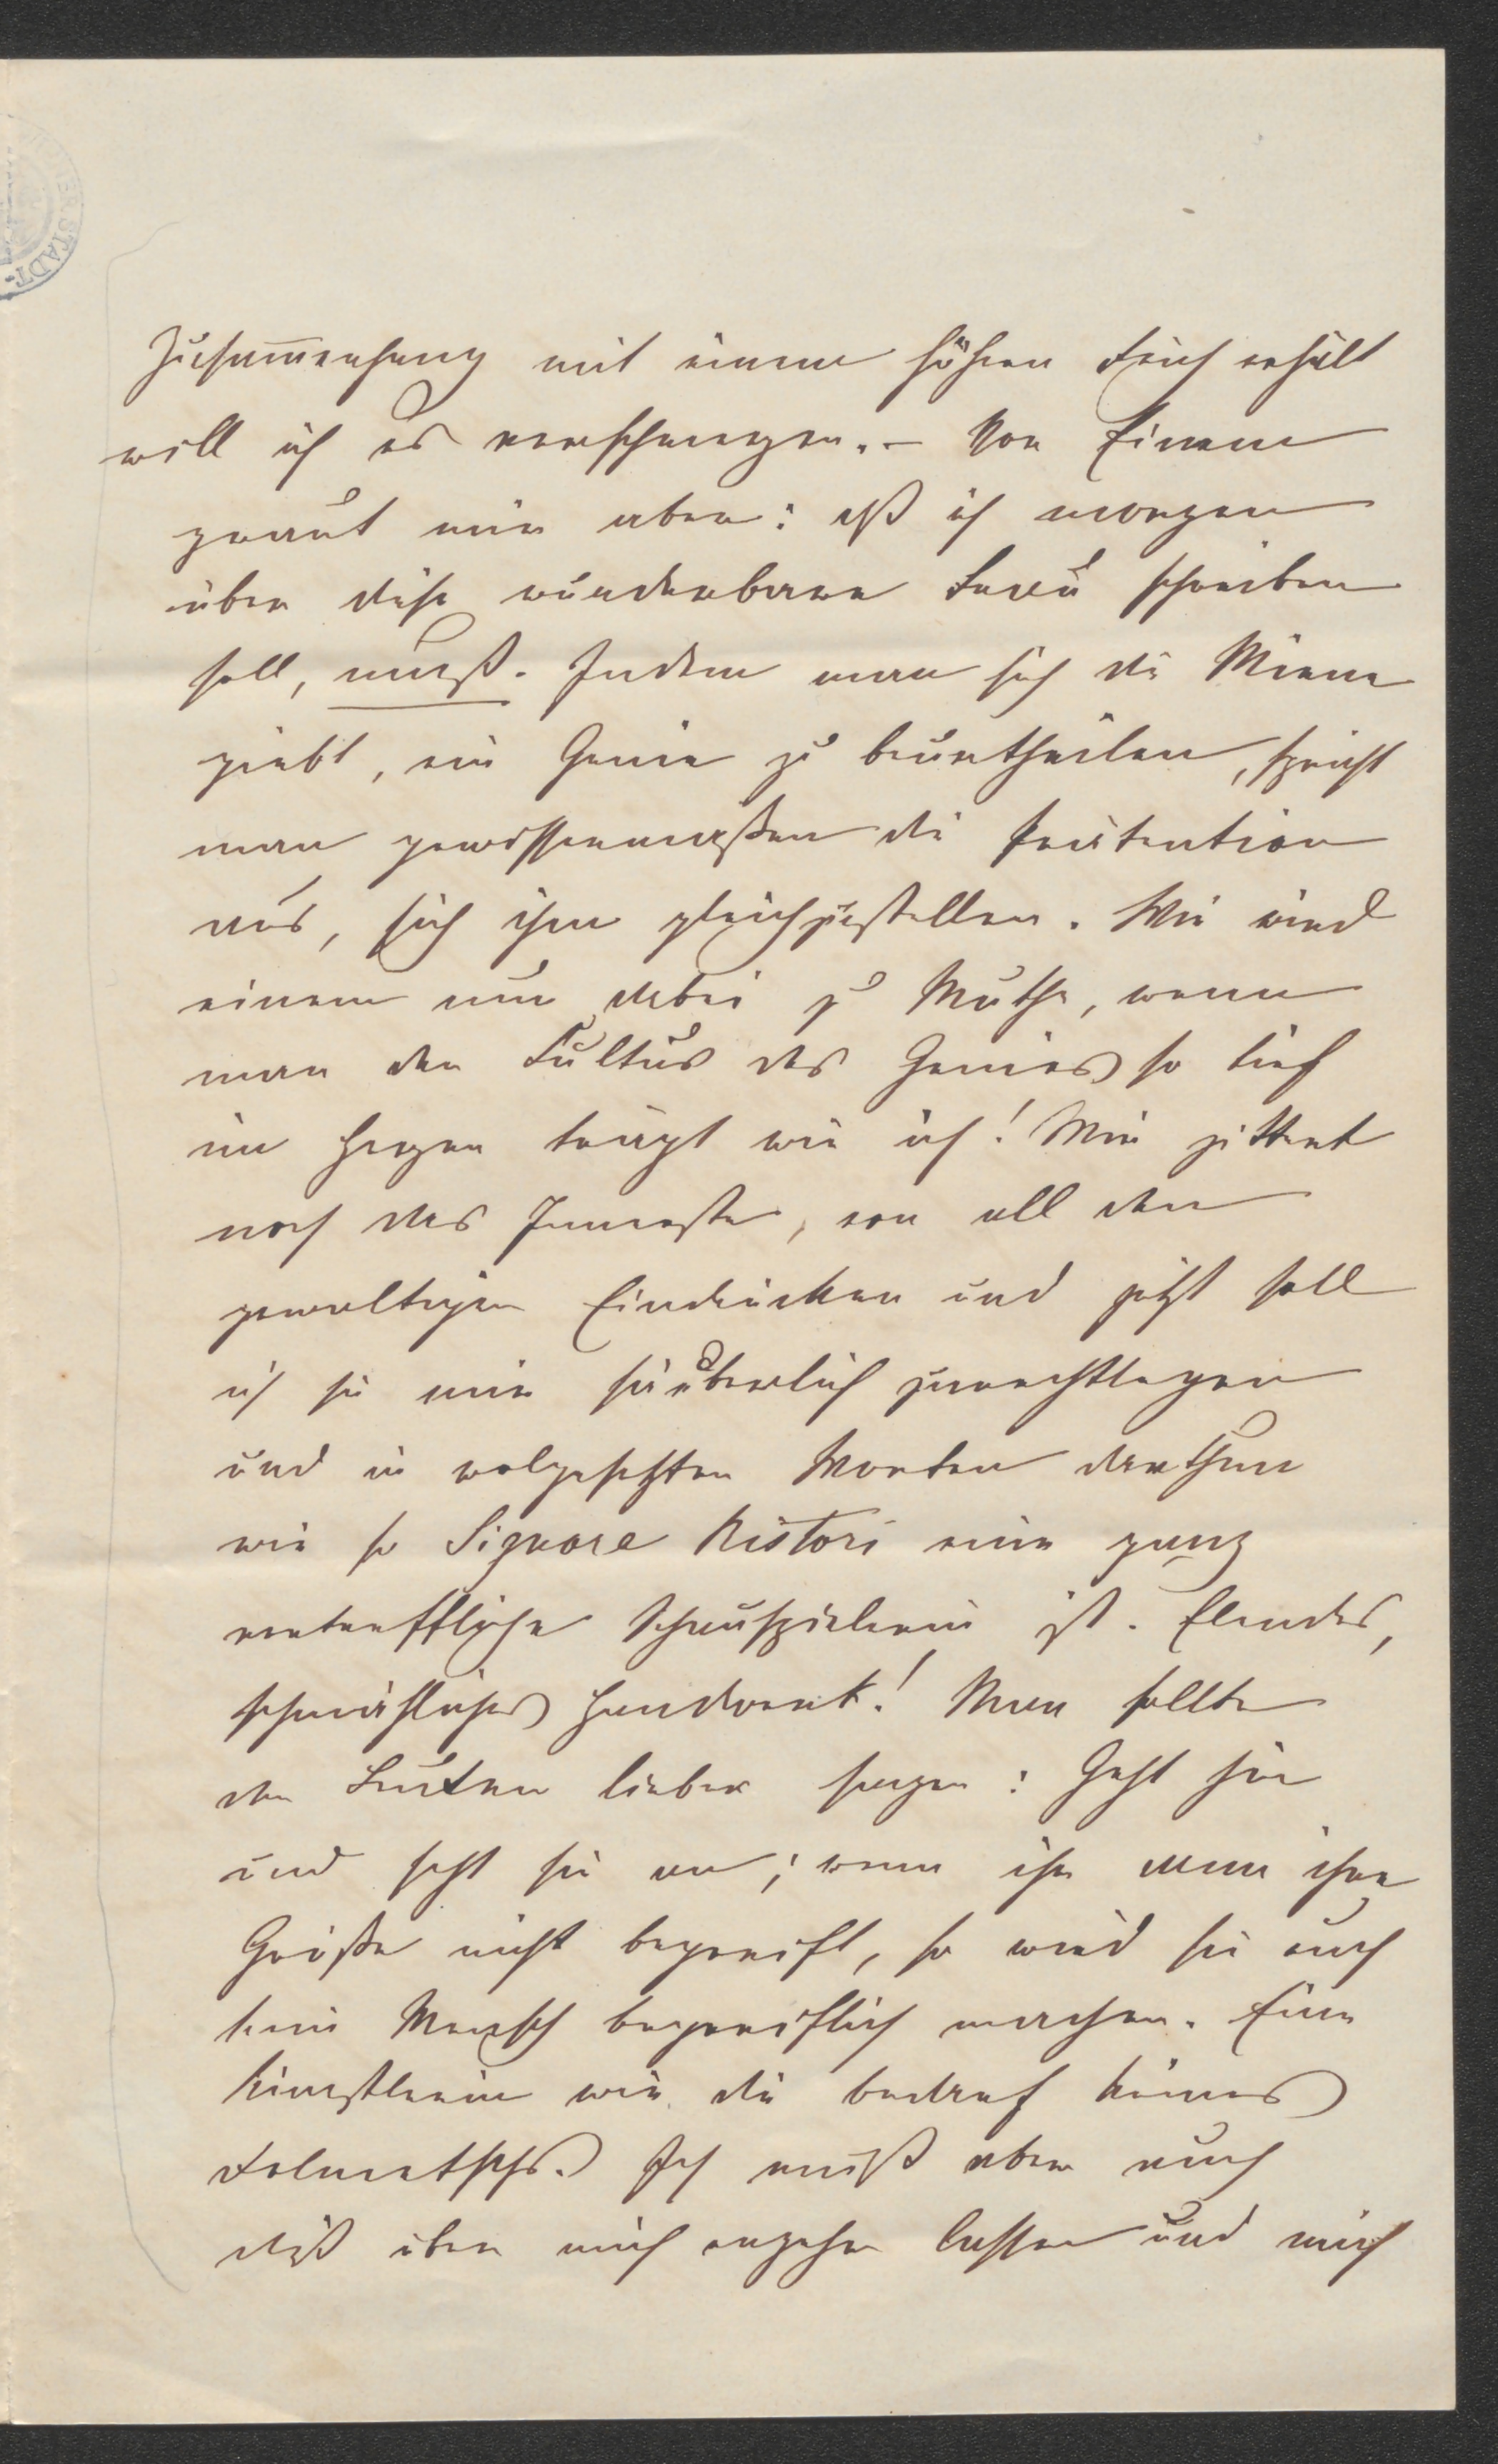 DER STADT-
Zusam̅enhang mit einem höhren erhält
will ich es verschweigen. – Vor Einem
graut mir aber: dß ich morgen
über diese wunderbare Frau schreiben
soll, muß. Indem man sich die Miene
giebt, ein Genie zu beurtheilen, spricht
man gewissermaßen die Prätention
aus, sich ihm gleichzustellen. Wie wird
einem nun dabei zu Muthe, wenn
man den Cultus des Genies so tief
im Herzen trägt wie ich! Mir zittert
noch das Innerste, von all den
gewaltigen Eindrücken und jetzt soll
ich sie mir säuberlich zurechtlegen
und in wolgesetzten Worten darthun
wie so Signora Ristori eine ganz
vortreffliche Schauspielerin ist. Elendes,
schmähliches Handwerk! Man sollte
den Leuten lieber sagen: Geht hin
und seht sie an; wenn ihr dann ihre
Größe nicht begreift, so wird sie euch
kein Mensch begreiflich machen. Eine
Künstlerin wie die bedarf keines
Dolmetschs. Ich muß aber auch
dieß über mich ergehen lassen und mich